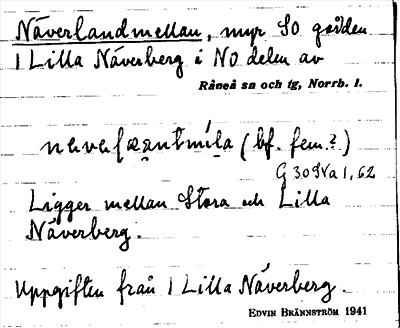 Näverlandmellan, myr SO gården
1 Lilla Näverberg i NO delen av
Råneå sn och tg, Norrb. l.
(bf. fem.?)
Ligger mellan Stora och Lilla
Näverberg.
Uppgiften från 1 Lilla Näverberg.
EDVIN BRÄNNSTRÖM 1941